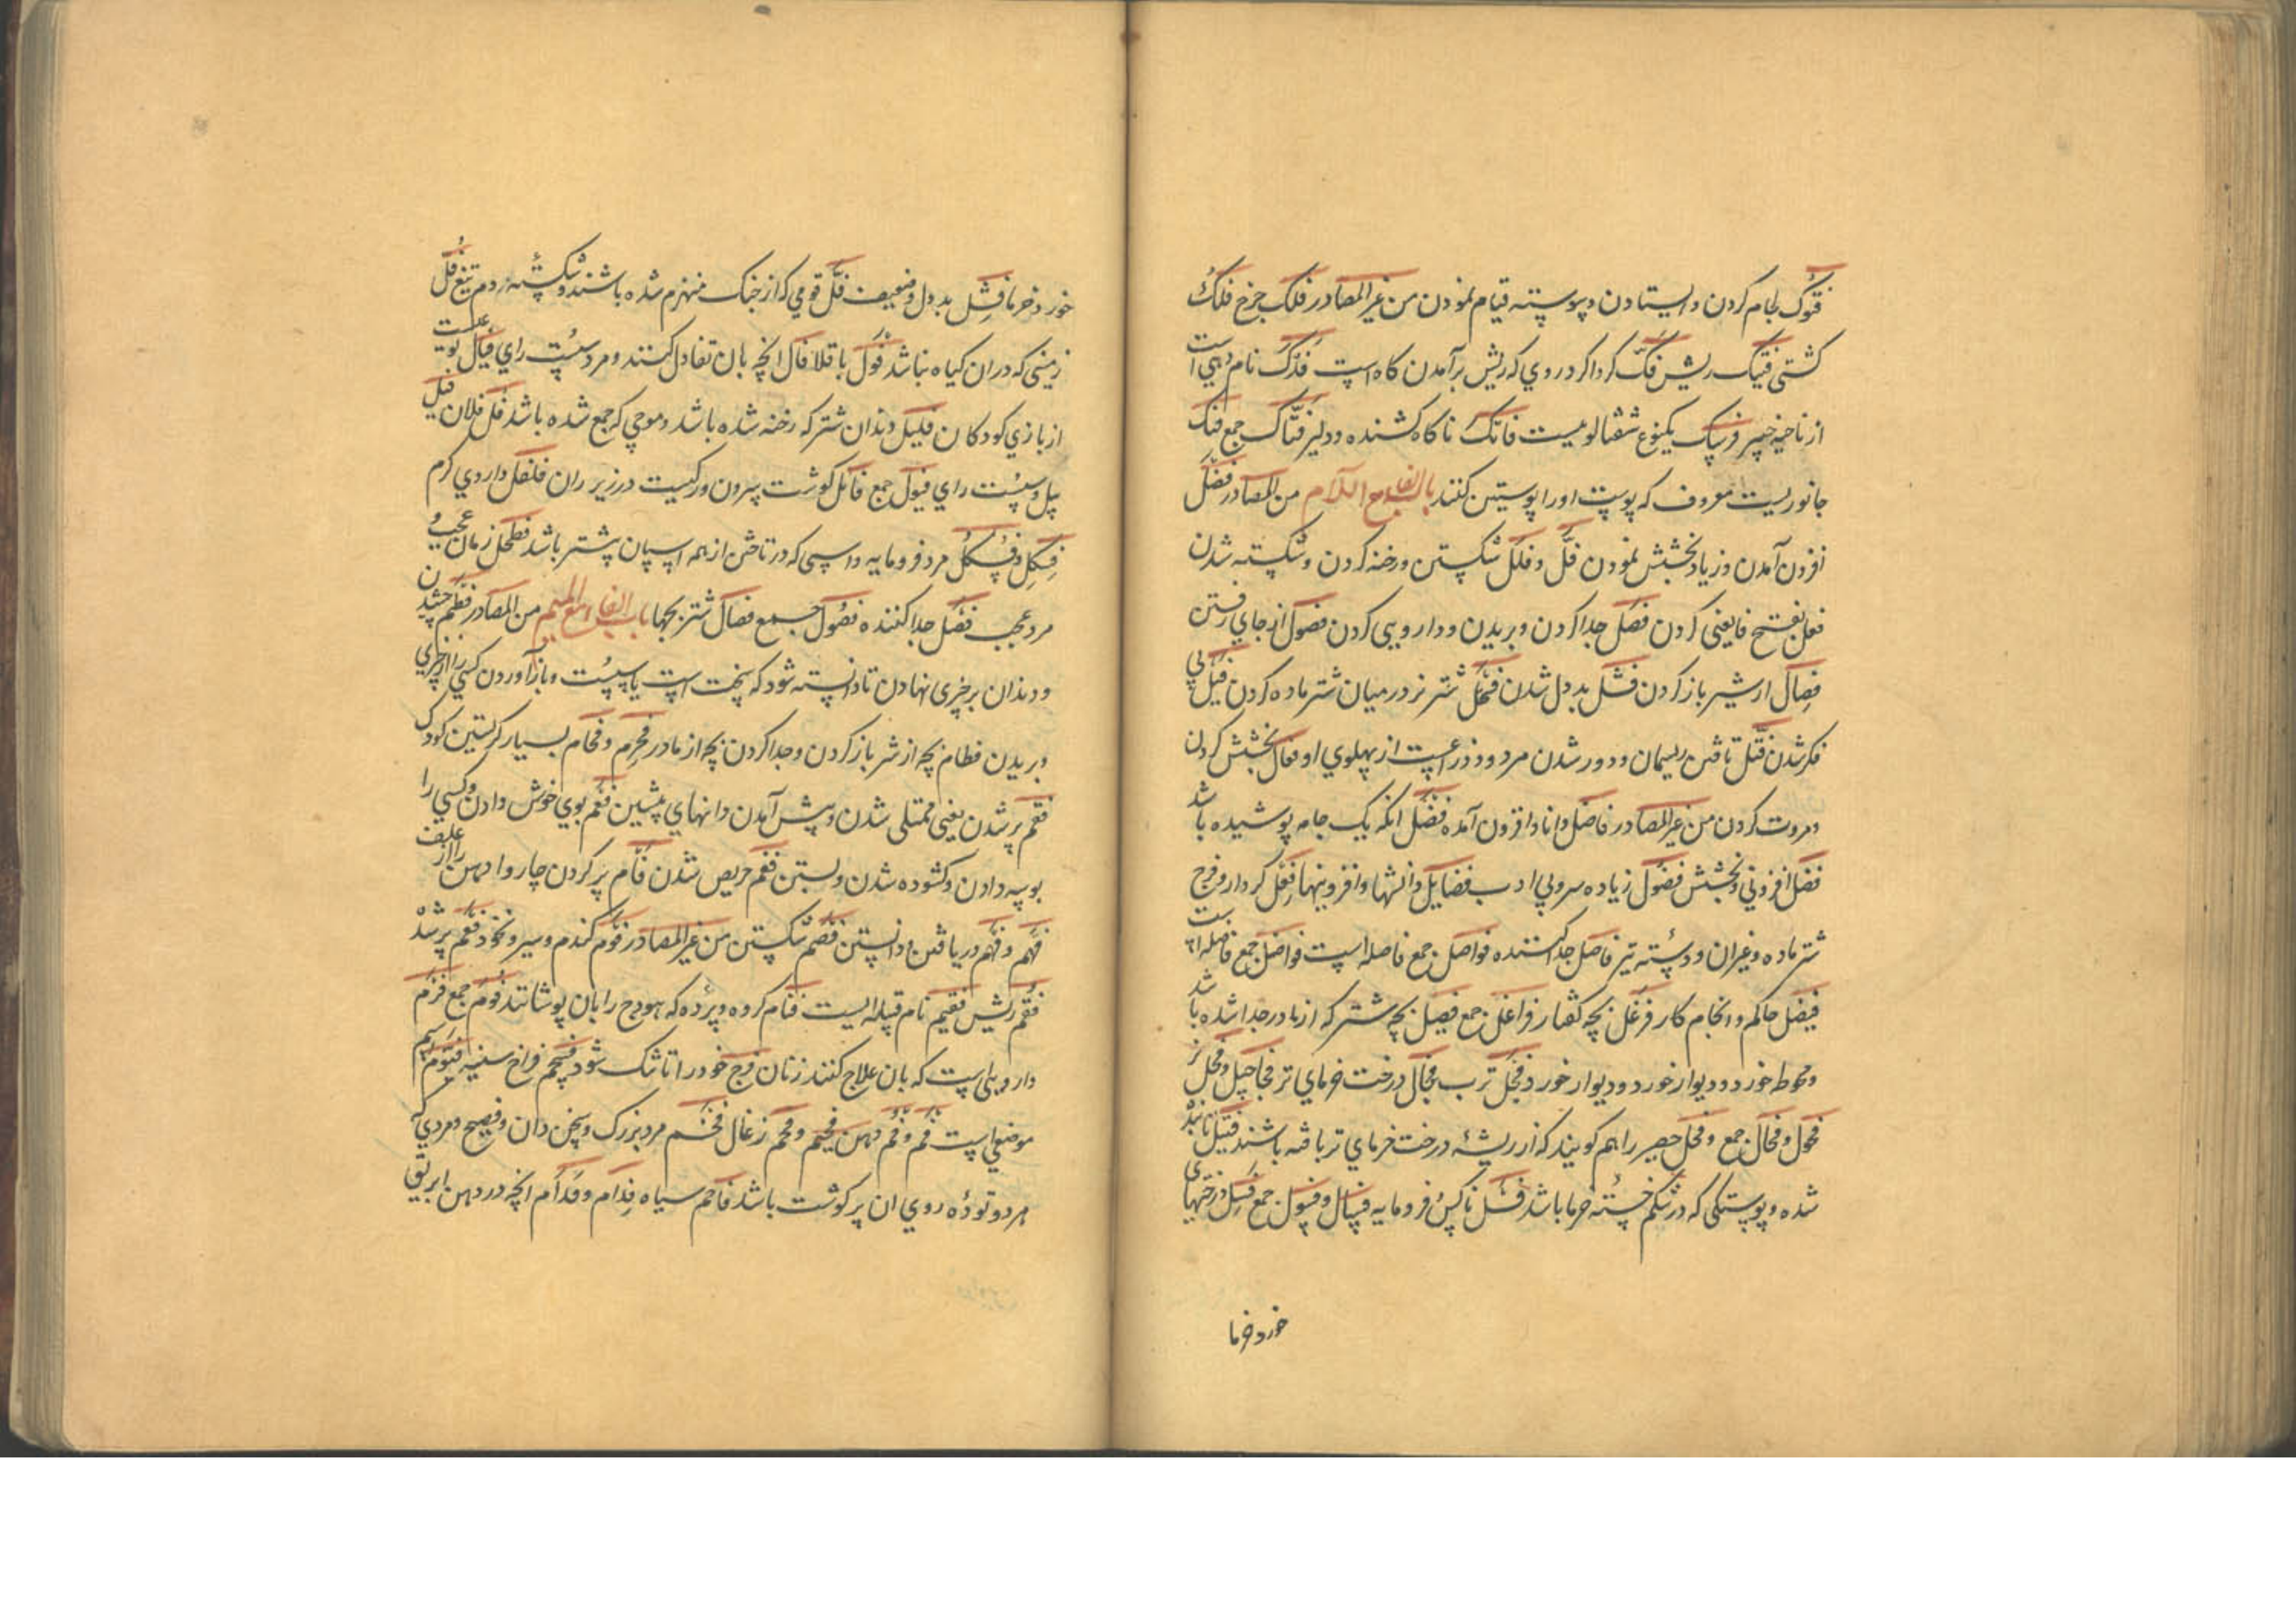 فتوک لجام کردن و ایستادن و پیوسته قیام نمودن من غیر المصادر فلک چرخ فلک
کشتی فنیک ریش فک کرداکرد روی که ریش برآمدن کاه است فدک نام دهی است
از ناحیه خیبر فرسک یکنوع شفتالو میست فاتک ناکاه کشنده و دلیر فتاک جمع فنک
جانوریست معروف که پوست او را پوستین کنند باب الفاء مع اللام من المصادر فضل
افزون آمدن و زیاد بخشش نمودن فل و فلل شکستن و رخنه کردن و شکسته شدن
فعل بفتح فا یعنی کردن فصل جدا کردن و بریدن و دار و بی کردن فصول از جای رفتن
فصال از شیر باز کردن فشل بد دل شدن فحل شتر نر در میان شتر ماده کردن
فکر شدن فتل تافتن ریسمان و دور شدن مرد و ذراعست از پهلوی او فعال بخشش کردن
و مروت کردن من غیر المصادر فاضل دانا و افزون آمده فضل انکه یک جامه پوشیده باشد
فضل افزونی و بخشش فضول زیاده سر و بی ادب فضایل دانشها و افزونیها فعل کردار و فرج
شتر ماده و غیر ان و دسته تیر فاصل جدا کننده فواصل جمع فاصله است فواضل جمع فاضله است
فیصل حاکم و انجام کار فرغل بچه کفتار فراغل جمع فصیل بچه شتر که از مادر جدا شده باشد
و محوطه خورد و دیوار خورد و دیوار خورد فجل ترب فحال درخت خرمای نر فحاحیل و فحل نر
فحول و فحال جمع و فحل حصیر را هم کویند که از ریشه درخت خرمای تر بافته باشند فتیل تابیده
شده و پوستکی که در شکم خسته خرما باشد فسل ناکس و فرومایه فسال و فسول جمع فسل درختهای
خورد خرما
خورد خرما فشل بد دل و ضعیف فل قومی که از جنک منهزم شده باشند و شکسته و دم تیغ فل
زمینی که در ان کیاه نباشد فول باقلا فال انچه بان تفادل کنند و مرد سست رای فیال
از بازی کودکان فلیل دندان شتر که رخنه شده باشد و موجی که جمع شده باشد فل فلان فیل
پیل و سست رای فیول جمع فائل کوشت بیرون ورکیست در زیر ران فلفل داروی کرم
فسکل و فسکل مرد فرومایه و اسبی که در تاختن از همه اسبان پستر باشد فطحل زمان
مرد عجب فصل جدا کننده فصول جمع فصال شتر بچها باب الفاء مع المیم من المصادر فطم
و دندان بر چیزی نهادن تا دانسته شود که سخت است یا سست و باز آوردن کسی را از چیزی
و بریدن فطام بچه از شیر باز کردن و جدا کردن بچه از مادر و فحام بسیار کریستن کودک
فعم پر شدن یعنی ممتلی شدن و پیش آمدن دندانهای پیشین فغم بوی خوش دادن و کسی را
بوسه دادن و کشوده شدن و بستن فقم حریص شدن فآم پر کردن چاروا دهن را از علف
فهم و فهم دریافتن و دانستن فصم شکستن من غیر المصادر فوم کندم و سیر و نخود فعم پر شده
ریش فقیم نام قبیله ایست فئام کروه و پرده که هودج را بان پوشانند فؤم جمع فرم
دارویی است که بان علاج کنند زنان فرج خود را تا تنک شود فسحم فراخ سینه
موضعی است فم و فم دهن فحیم و فحم زغال فخم مرد بزرک و سخن دان و فصیح و مردی که
هر دو توده روی ان پر کوشت باشد فاحم سیاه فدام و فدام انچه در دهن ابریق